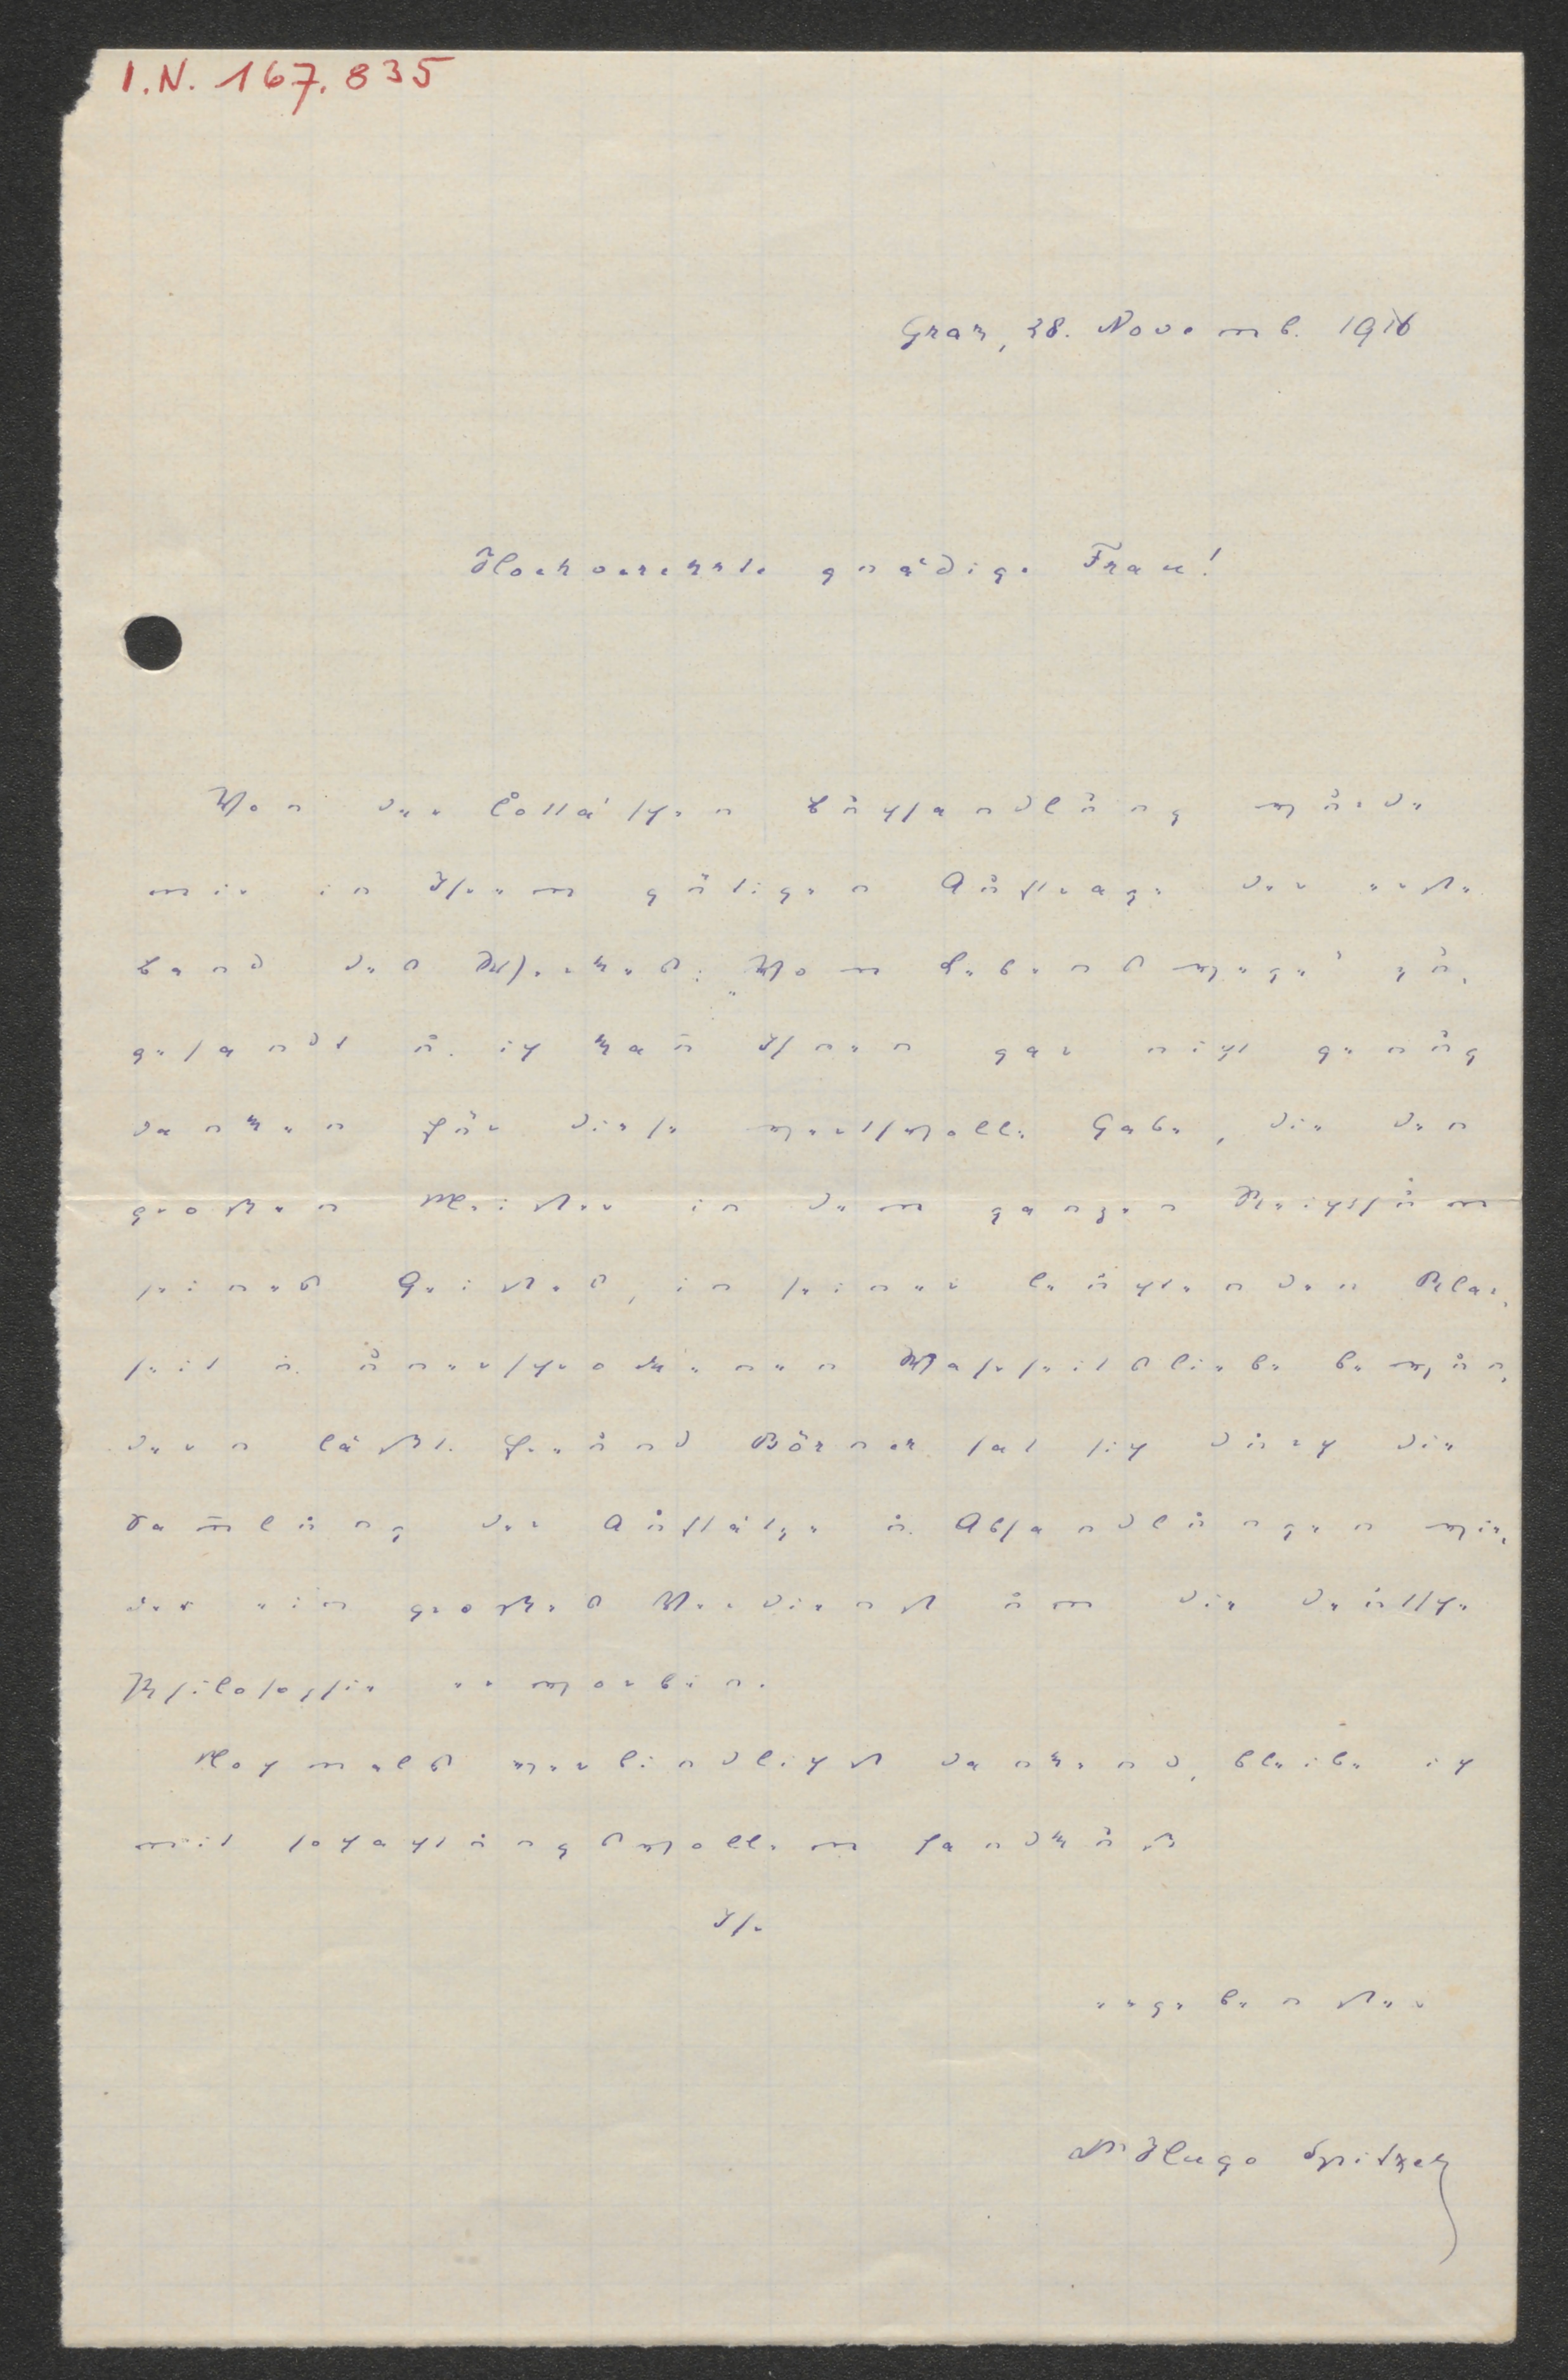 I.N. 167.835
Graz, 28. Novemb. 1916
Hochverehrte gnädige Frau!
Von der Cotta'schen Buchhandlung wurde
mir in Ihrem gütigen Auftrage der erste
Band des Werkes: „Vom Lebenswege" zu-
gesandt u. ich kan̄ Ihnen gar nicht genug
danken für diese wertvolle Gabe, die den
großen Meister in dem ganzen Reichtum
seines Geistes, in seiner leuchtenden Klar-
heit u. unerschrockenen Wahrheitsliebe bewun-
dern läßt. Freund Börner hat sich durch die
Sam̄lung der Aufsätze u. Abhandlungen wie-
der ein großes Verdienst um die deutsche
Philosophie erworben.
Nochmals verbindlichst dankend, bleibe ich
mit hochachtungsvollem Handkuß
Ihr
ergebenster
Dr Hugo Spitzer